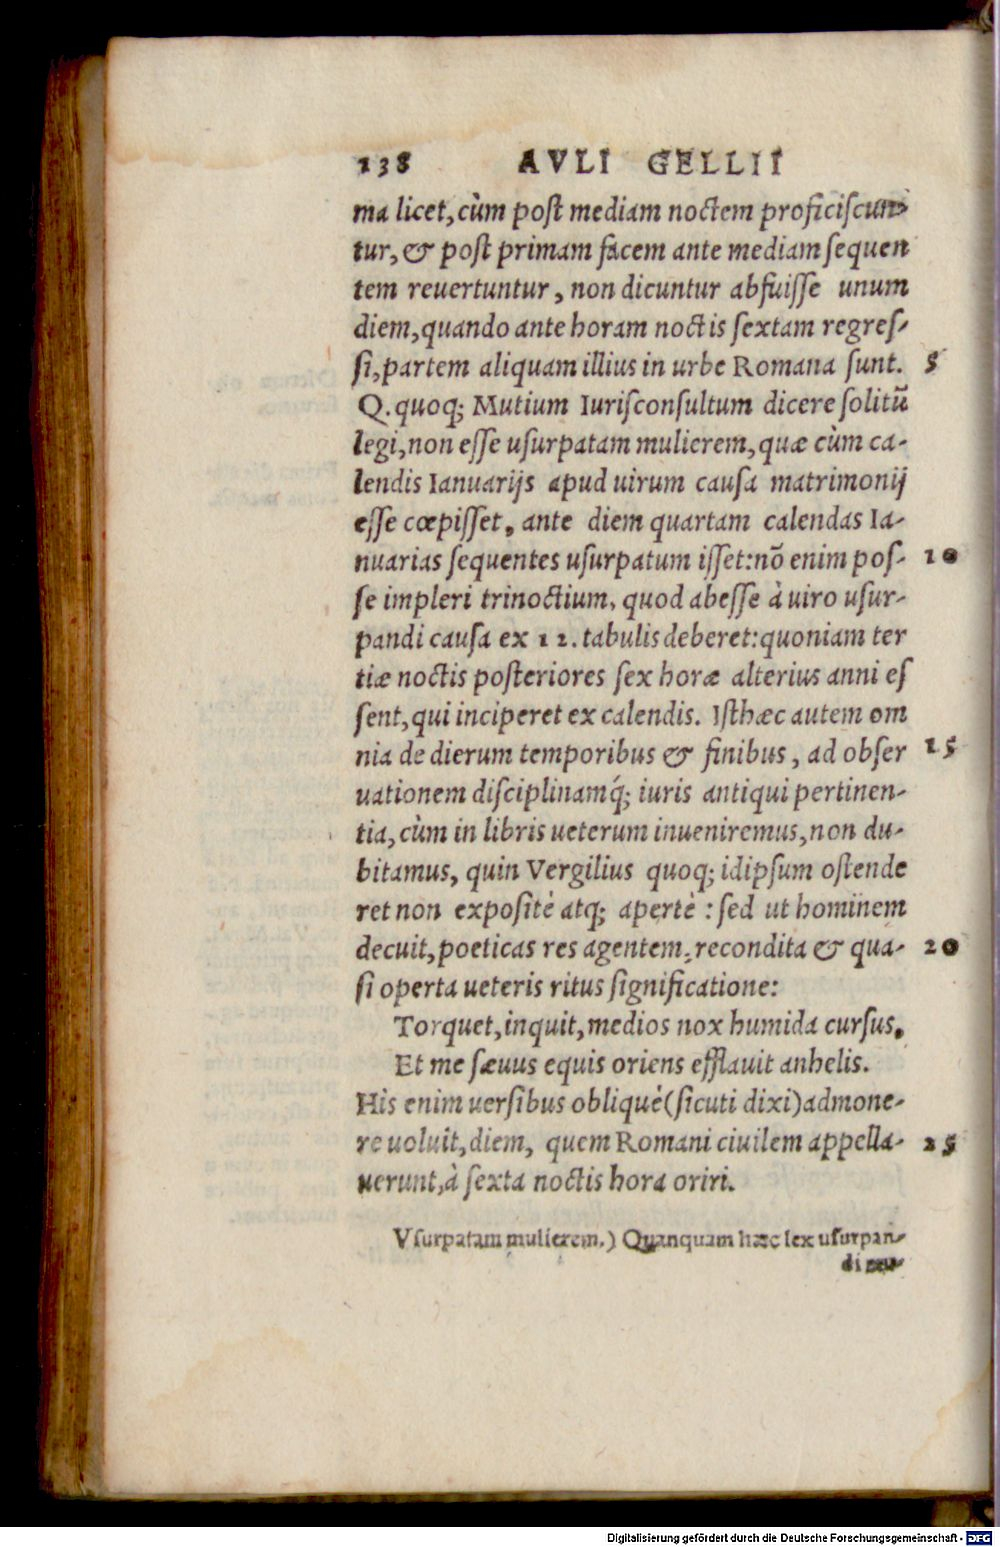 138 AVLI GELLII
ma licet, cùm post mediam noctem proficiscun-
tur, & post primam facem ante mediam sequen
tem reuertuntur, non dicuntur abfuisse unum
diem, quando ante horam noctis sextam regres-
si, partem aliquam illius in urbe Romana sunt. 5
Q. quoq; Mutium Iurisconsultum dicere solitū
legi, non esse usurpatam mulierem, quæ cùm ca-
lendis Ianuarijs apud uirum causa matrimonij
esse cœpisset, ante diem quartam calendas Ia-
nuarias sequentes usurpatum isset: nō enim pos- 10
se impleri trinoctium, quod abesse à uiro usur-
pandi causa ex 12. tabulis deberet: quoniam ter
tiæ noctis posteriores sex horæ alterius anni es
sent, qui inciperet ex calendis. Isthæc autem om
nia de dierum temporibus & finibus, ad obser 15
uationem disciplinamq́; iuris antiqui pertinen-
tia, cùm in libris ueterum inueniremus, non du-
bitamus, quin Vergilius quoq; idipsum ostende
ret non expositè atq; apertè : sed ut hominem
decuit, poeticas res agentem, recondita & qua- 20
si operta ueteris ritus significatione:
Torquet, inquit, medios nox humida cursus,
Et me sæuus equis oriens efflauit anhelis.
His enim uersibus obliquè (sicuti dixi) admone-
re uoluit, diem, quem Romani ciuilem appella- 25
uerunt, à sexta noctis hora oriri.
Vsurpatam mulierem.) Quanquam hæc lex usurpan-
di
Digitalisierung gefördert durch die Deutsche Forschungsgemeinschaft - DFG